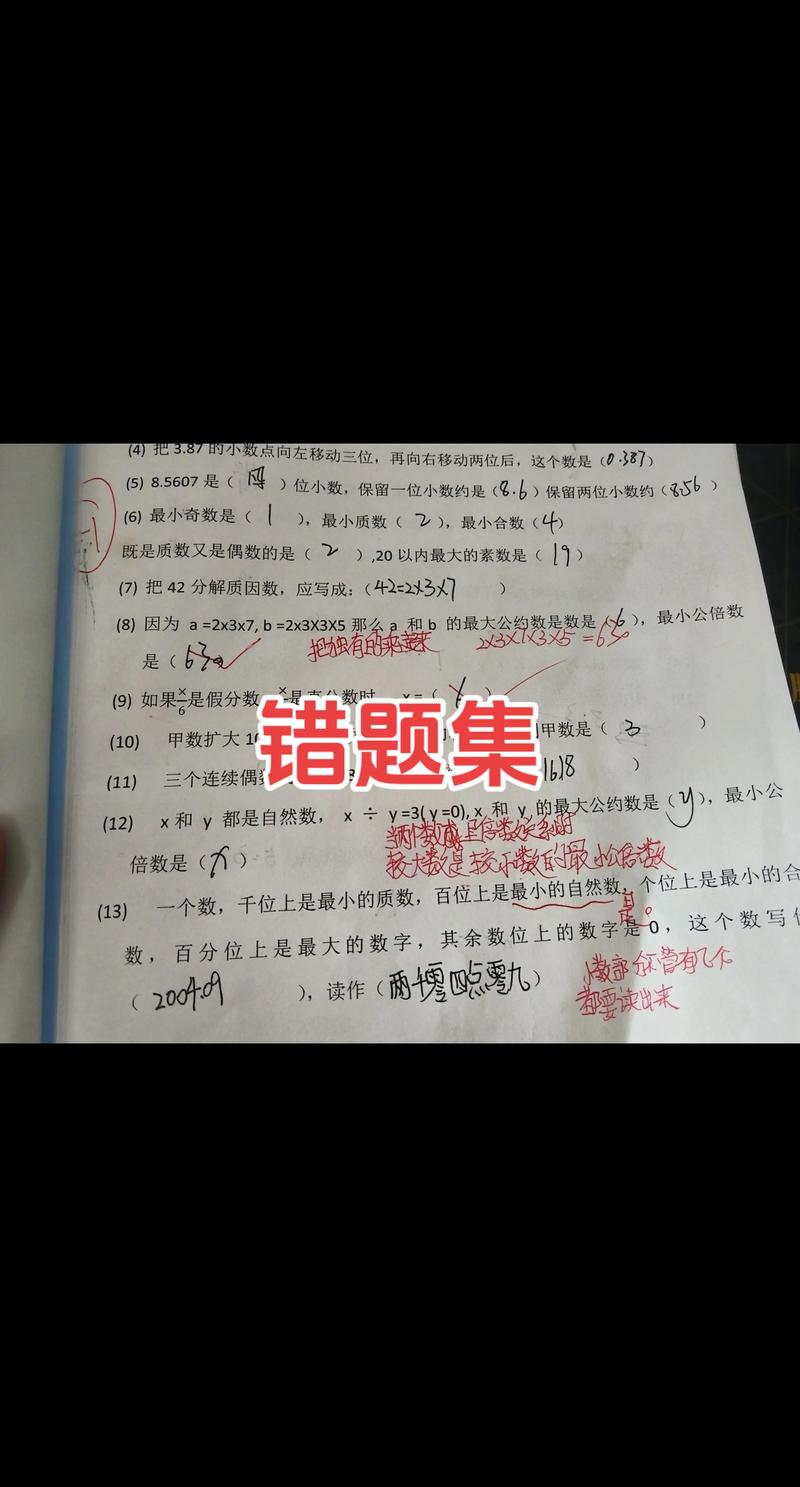 (4) 把 3.87 的小数点向左移动三位，再向右移动两位后，这个数是（0.387）
(5) 8.5607 是（ 四 ）位小数，保留一位小数约是（8.6）保留两位小数约（8.56 ）
(6) 最小奇数是（ 1 ），最小质数（ 2 ），最小合数（4）
既是质数又是偶数的是（ 2 ）,20 以内最大的素数是（ 19 ）
(7) 把 42 分解质因数，应写成：（42=2×3×7 ）
(8) 因为 a =2x3x7, b =2x3X3X5 那么 a 和 b 的最大公约数是数是（ 6 ），最小公倍数
把独有的乘起来 2×3×7×3×5 =630
是（ 630
(9) 如果x/6是假分数 x 是真分数时 x =（
错题集
(10) 甲数扩大 10 甲数是（ 3 ）
(11) 三个连续偶数 1618 ）
(12) x 和 y 都是自然数， x ÷ y =3( y =0), x 和 y 的最大公约数是（y），最小公
当两个数成 倍数关系时
倍数是（x）
较大数是较小数的最小公倍数
(13) 一个数，千位上是最小的质数，百位上是最小的自然数，个位上是最小的合
数，百分位上是最大的数字，其余数位上的数字是 0，这个数写作
（ 2004.09 ），读作（两千零四点零九）
小数部分不管有几个
都要读出来